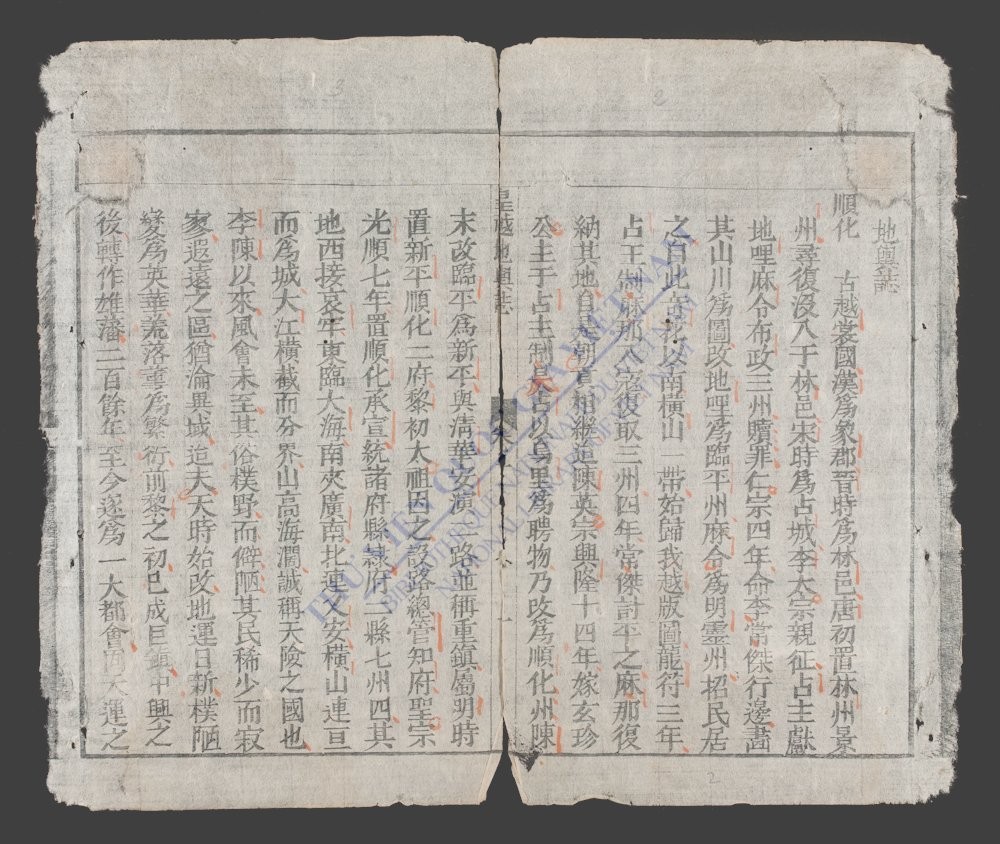 地輿誌
順化 古越裳國漢爲象郡晉時爲林邑唐初置林州景
州尋復沒入于林邑宋時爲占城李太宗親征占主獻
地哩麻令布政三州贖罪仁宗四年命李常傑行邊畵
其山川爲圖改地哩爲臨平州麻令爲明靈州招民居
之自此 以南橫山一帶始歸我越版圖龍符三年
占王制麻那入寇復取三州四年常傑討平之麻那復
納其地自是朝貢相繼迨陳英宗興隆十四年嫁玄珍
公主于占主制旻占以烏里爲聘物乃改爲順化州陳
皇越地輿誌
卷
一
末改臨平爲新平與淸華乂演二路並稱重鎭屬明時
置新平順化二府黎初太祖因之設路總管知府聖宗
光順七年置順化承宣統諸府縣隷府二縣七州四其
地西接哀牢東臨大海南夾廣南北連乂安橫山連亘
而爲城大江橫截而分界山高海濶誠稱天險之國也
李陳以來風會未至其俗樸野而僻陋其民稀少而寂
寥遐遠之區猶淪異域迨夫天時始改地運日新樸陋
變爲英華荒落轉爲繁衍前黎之初已成巨鎭中興之
後轉作雄藩二百餘年至今遂爲一大都會 天運之
THƯ VIỆN QUỐC GIA VIỆT NAM
BIBLIOTHÈQUE NATIONALE DU VIETNAM
NATIONAL LIBRARY OF VIETNAM
3
2
2